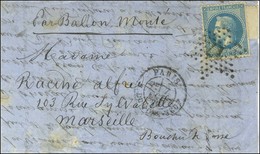 Par Ballon Monté
Madame
PARIS
Racine Alfred
103 Rue Sylvabelle
Marseille
Bouches du Rhône